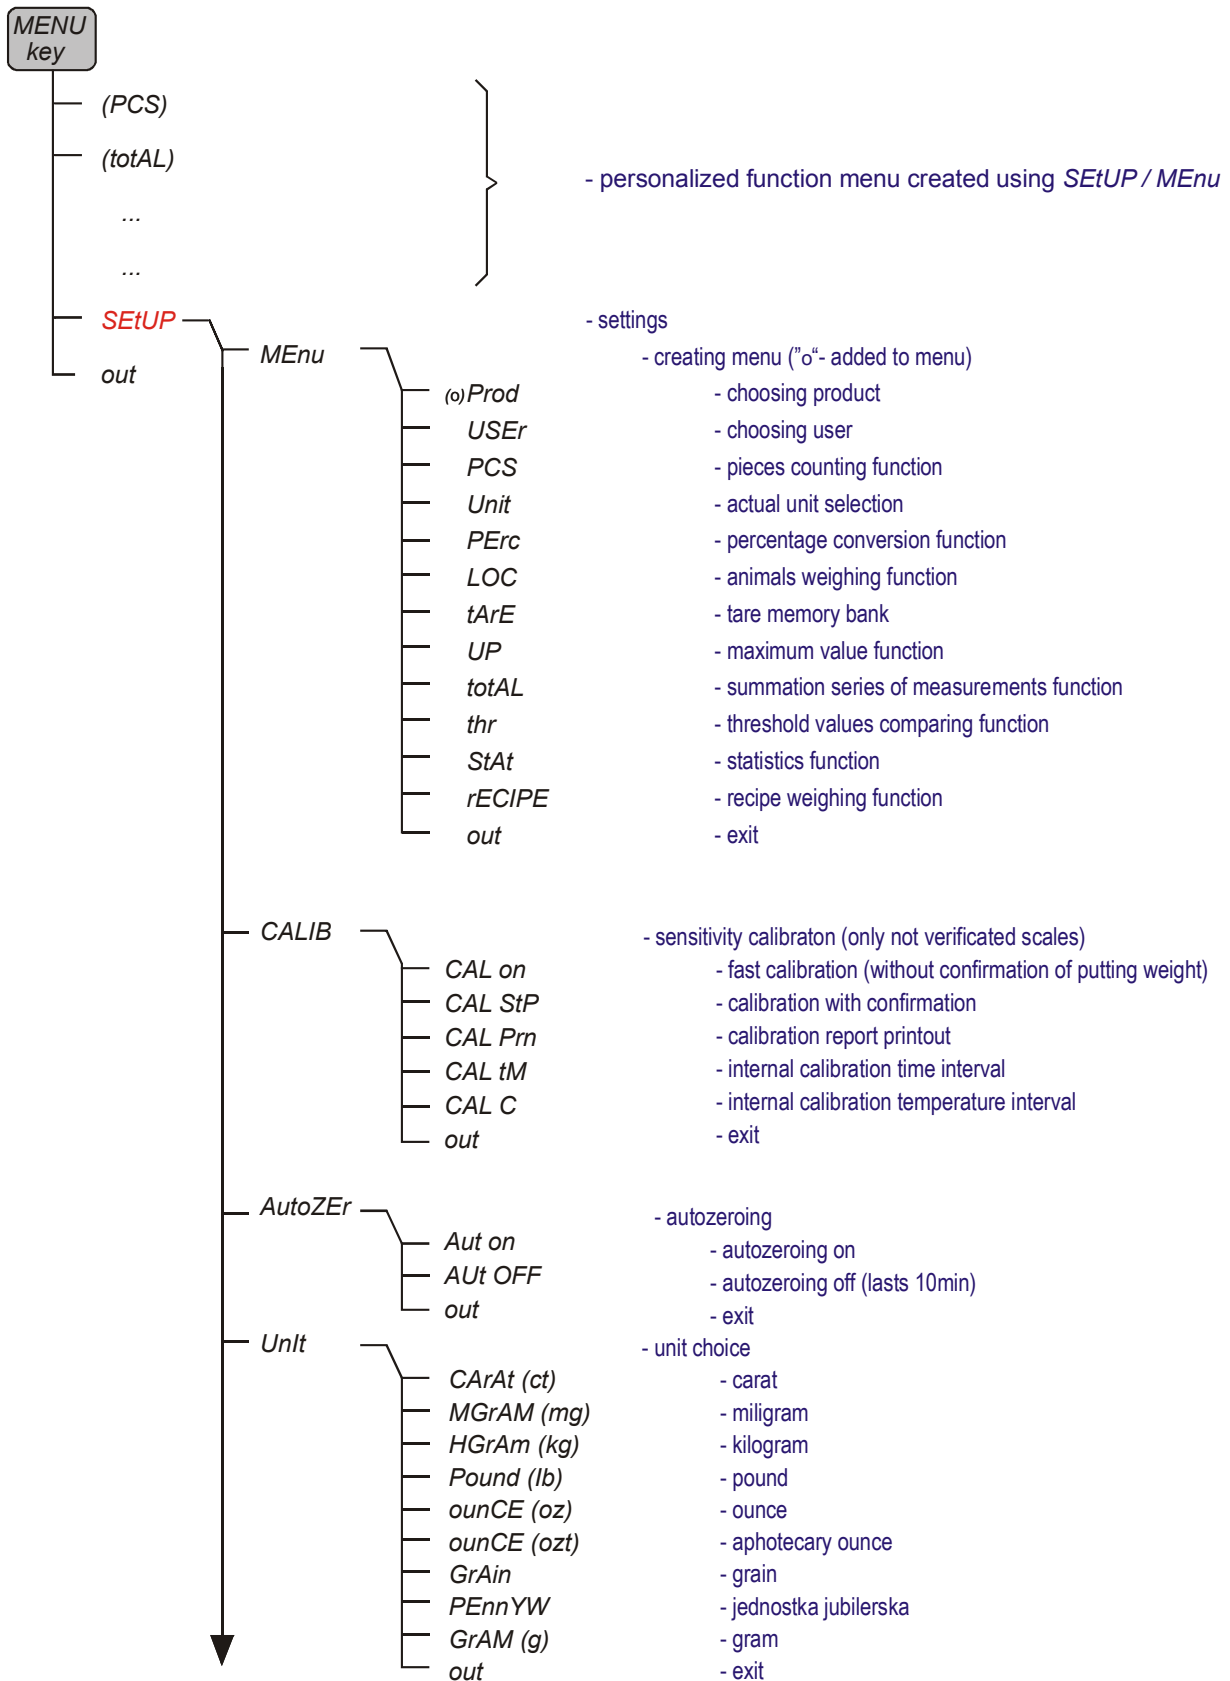 MENU
key
(PCS)
(totAL)
- personalized function menu created using SEtUP / MEnu
...
...
SEtUP - settings
MEnu - creating menu ("o"- added to menu)
out
(o) Prod - choosing product
USEr - choosing user
PCS - pieces counting function
Unit - actual unit selection
PErc - percentage conversion function
LOC - animals weighing function
tArE - tare memory bank
UP - maximum value function
totAL - summation series of measurements function
thr - threshold values comparing function
StAt - statistics function
rECIPE - recipe weighing function
out - exit
CALIB - sensitivity calibraton (only not verificated scales)
CAL on - fast calibration (without confirmation of putting weight)
CAL StP - calibration with confirmation
CAL Prn - calibration report printout
CAL tM - internal calibration time interval
CAL C - internal calibration temperature interval
out - exit
AutoZEr - autozeroing
Aut on - autozeroing on
AUt OFF - autozeroing off (lasts 10min)
out - exit
UnIt - unit choice
CArAt (ct) - carat
MGrAM (mg) - miligram
HGrAm (kg) - kilogram
Pound (lb) - pound
ounCE (oz) - ounce
ounCE (ozt) - aphotecary ounce
GrAin - grain
PEnnYW - jednostka jubilerska
GrAM (g) - gram
out - exit